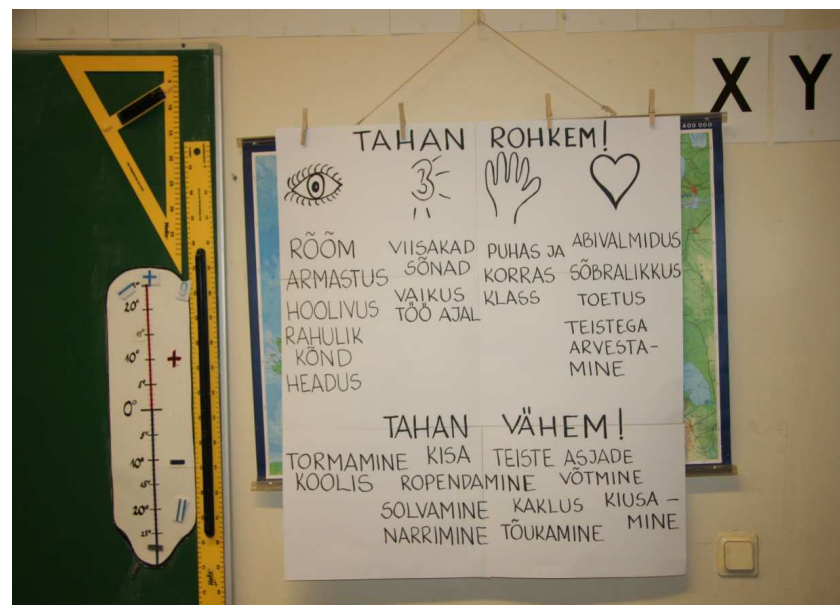 X Y
400 000
TAHAN ROHKEM!
RÕÕM
ARMASTUS
HOOLIVUS
RAHULIK
KÕND
HEADUS
VIISAKAD
SÕNAD
VAIKUS
TÖÖ AJAL
PUHAS JA
KORRAS
KLASS
ABIVALMIDUS
SÕBRALIKKUS
TOETUS
TEISTEGA
ARVESTA-
MINE
TAHAN VÄHEM!
TORMAMINE
KOOLIS
KISA
ROPENDAMINE
TEISTE ASJADE
VÕTMINE
SOLVAMINE
KAKLUS
KIUSA-
MINE
NARRIMINE
TÕUKAMINE
20°
10°
5°
0°
5°
10°
15°
20°
25°